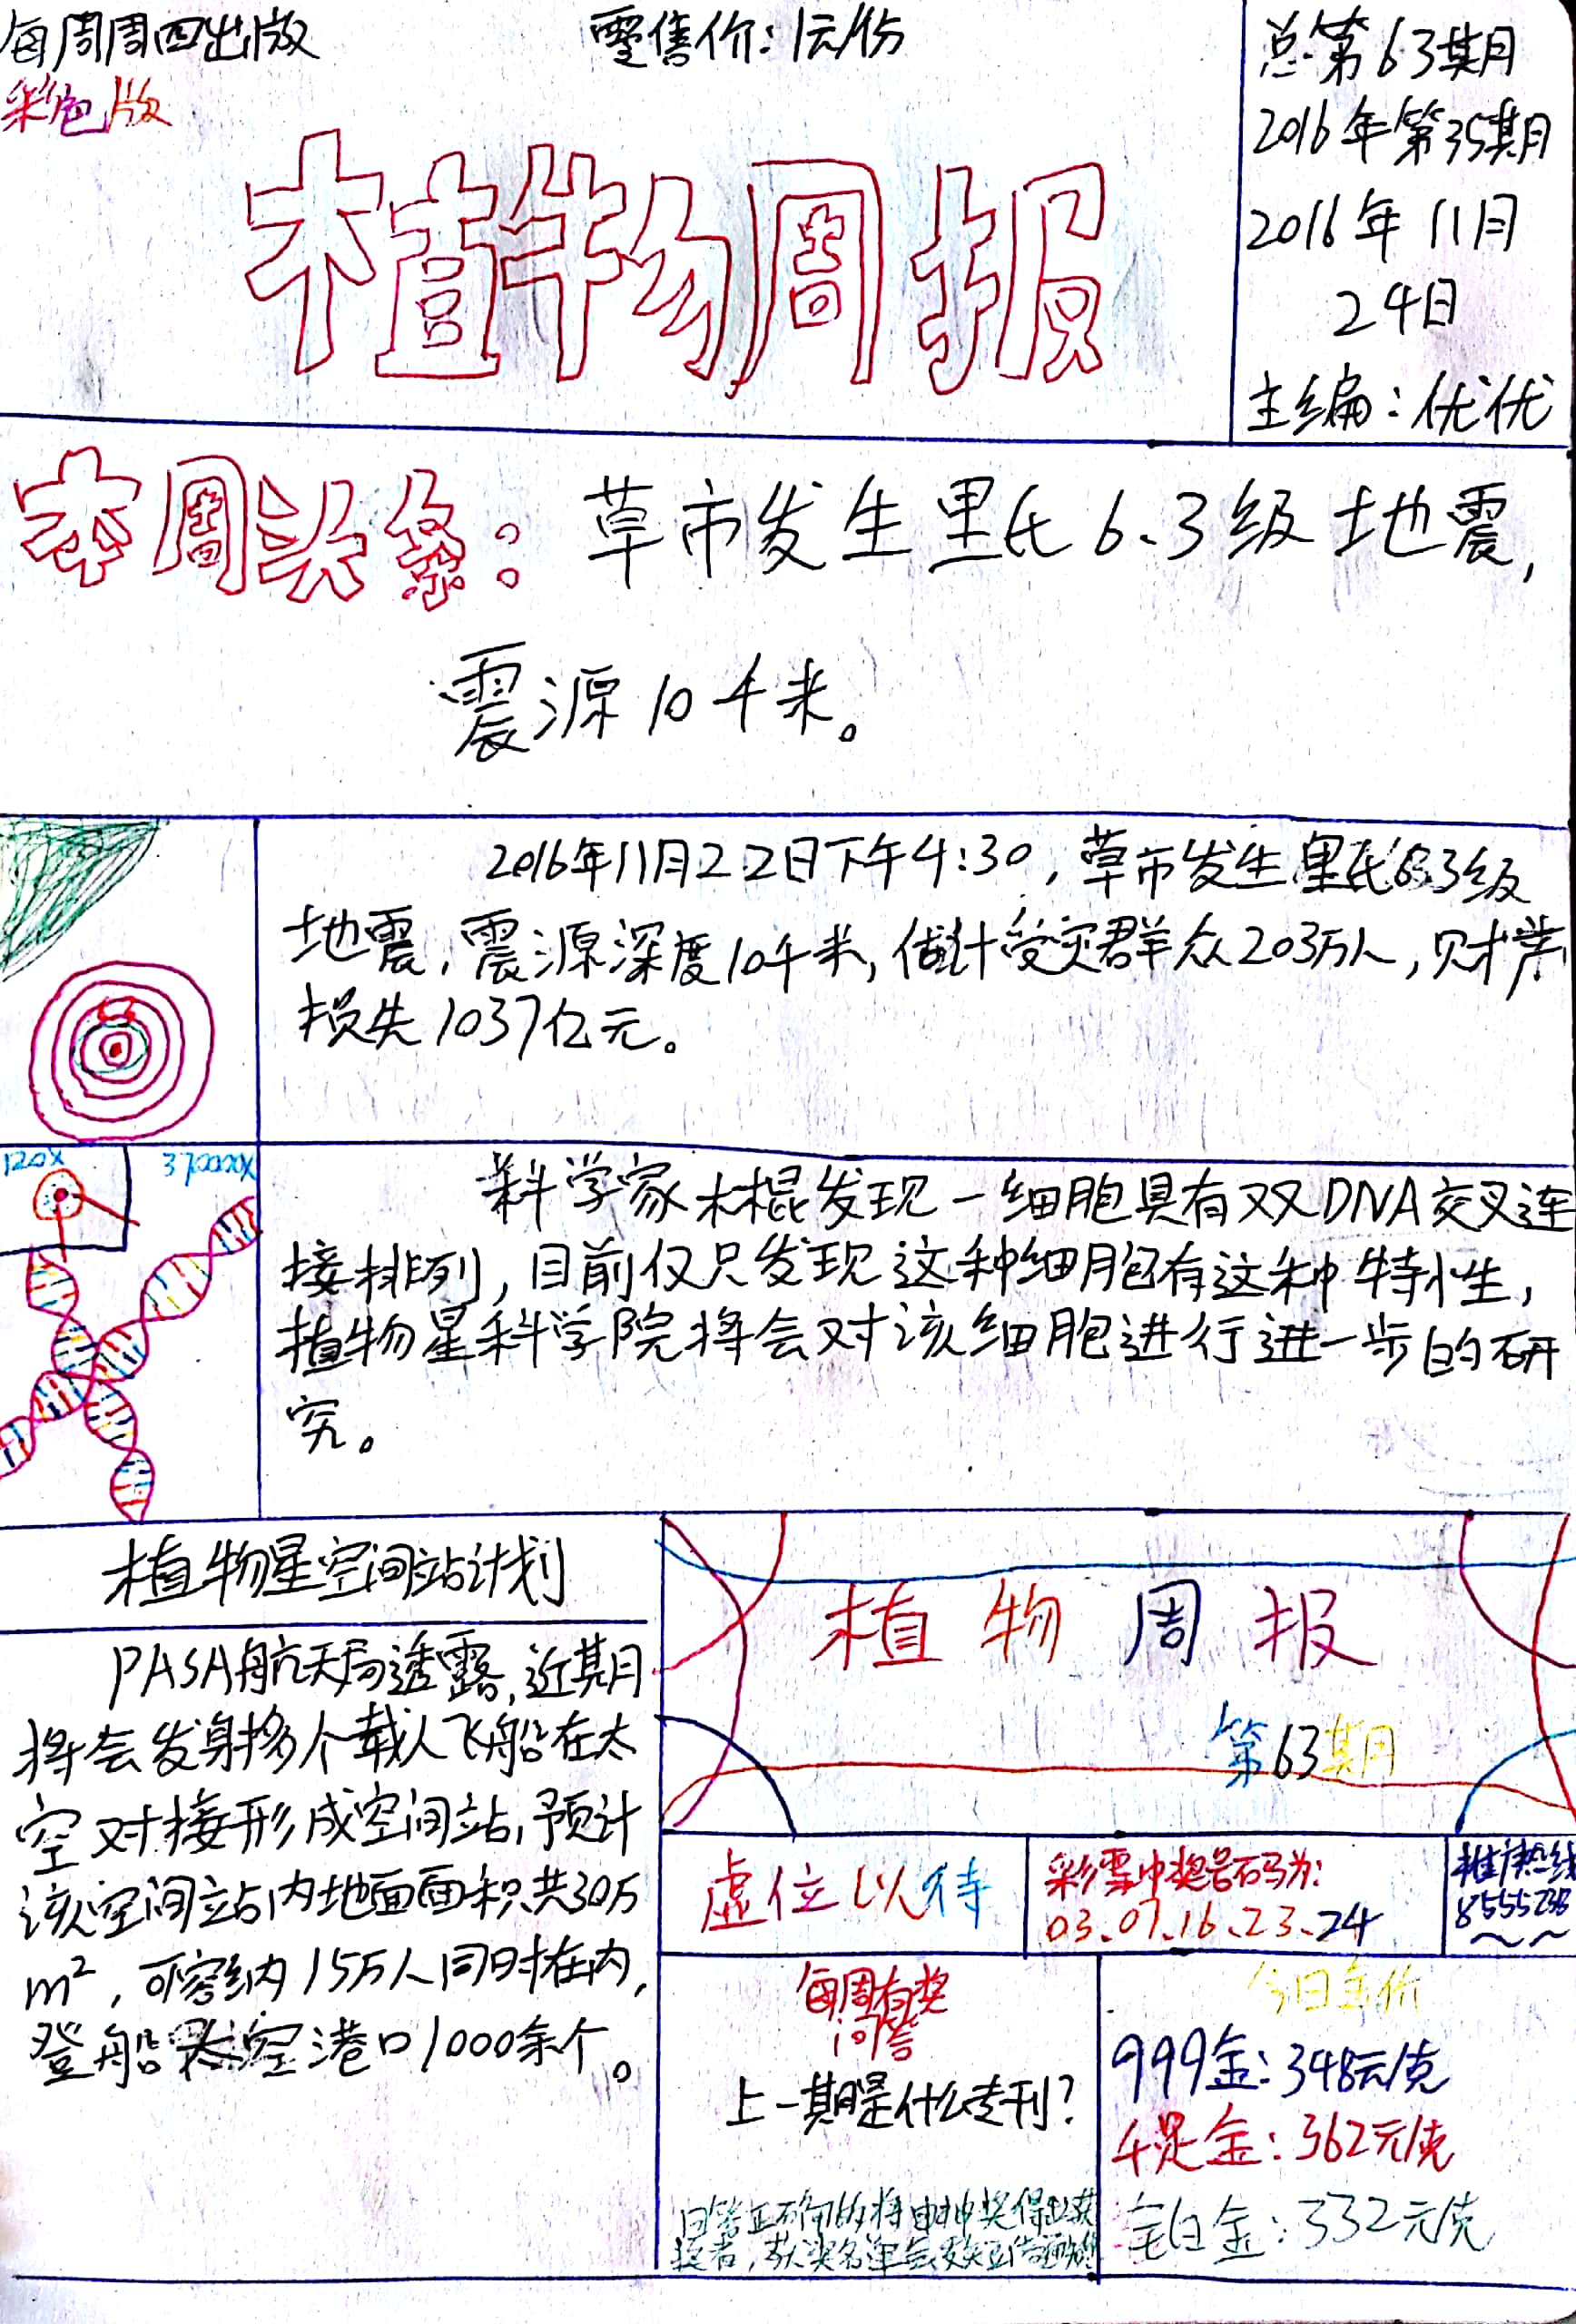 每周周四出版
彩色版
零售价：1元/份
总第63期
2016年第35期
2016年11月
24日
主编：优优
植物周报
本周头条：草市发生里氏6.3级地震，
震源10千米。
2016年11月22日下午4:30，草市发生里氏6.3级
地震，震源深度10千米，估计受灾群众203万人，财产
损失1037亿元。
120X
37000X
科学家木棍发现一细胞具有双DNA交叉连
接排列，目前仅只发现这种细胞有这种特性，
植物星科学院将会对该细胞进行进一步的研
究。
植物星空间站计划
PASA航天局透露，近期
将会发射多个载人飞船在太
空对接形成空间站，预计
该空间站内地面面积共30万
m²，可容纳15万人同时在内，
登船太空港口1000余个。
植物周报
第63期
虚位以待
彩票中奖号码为：
03.07.16.23.24
推广热线
每周有奖
问答
上一期是什么专刊？
今日金价
999金：348元/克
千足金：362元/克
白金：332元/克